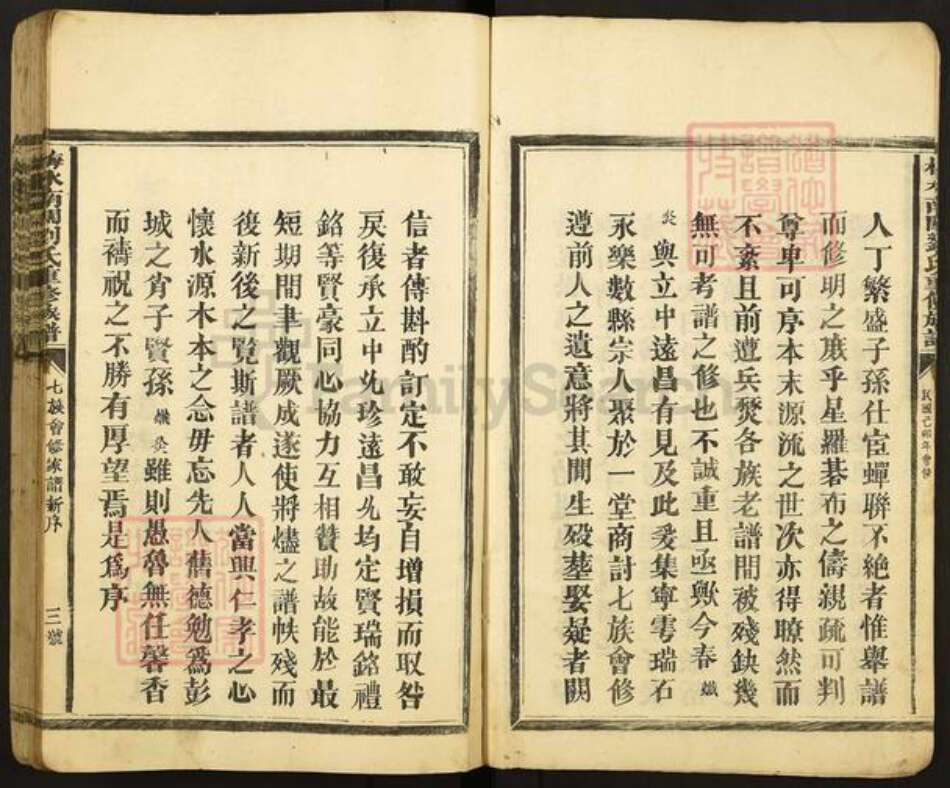 人丁繁盛子孫仕宦蟬聯不絶者惟舉譜
而修明之庶乎星羅碁布之儔親疏可判
尊卑可序本末源流之世次亦得瞭然而
不紊且前遭兵燹各族老譜間被殘缺幾
無可考譜之修也不誠重且亟歟今春 熾
炎 與立中遠昌有見及此爰集寧雩瑞石
永樂數縣宗人聚於一堂商討七族會修
遵前人之遺意將其間生殁塟娶疑者闕
民國己卯年會修
梅水南關劉氏重修族譜
七族會修家譜新序
三號
信者傳斟酌訂定不敢妄自增損而取咎
戾復承立中光珍遠昌光均定賢瑞銘禮
銘等賢豪同心協力互相贊助故能於最
短期間聿觀厥成遂使將燼之譜帙殘而
復新後之覽斯譜者人人當興仁孝之心
懷水源木本之念毋忘先人舊德勉爲彭
城之肖子賢孫 熾炎 雖則愚魯無任馨香
而禱祝之不勝有厚望焉是爲序
FamilySearch